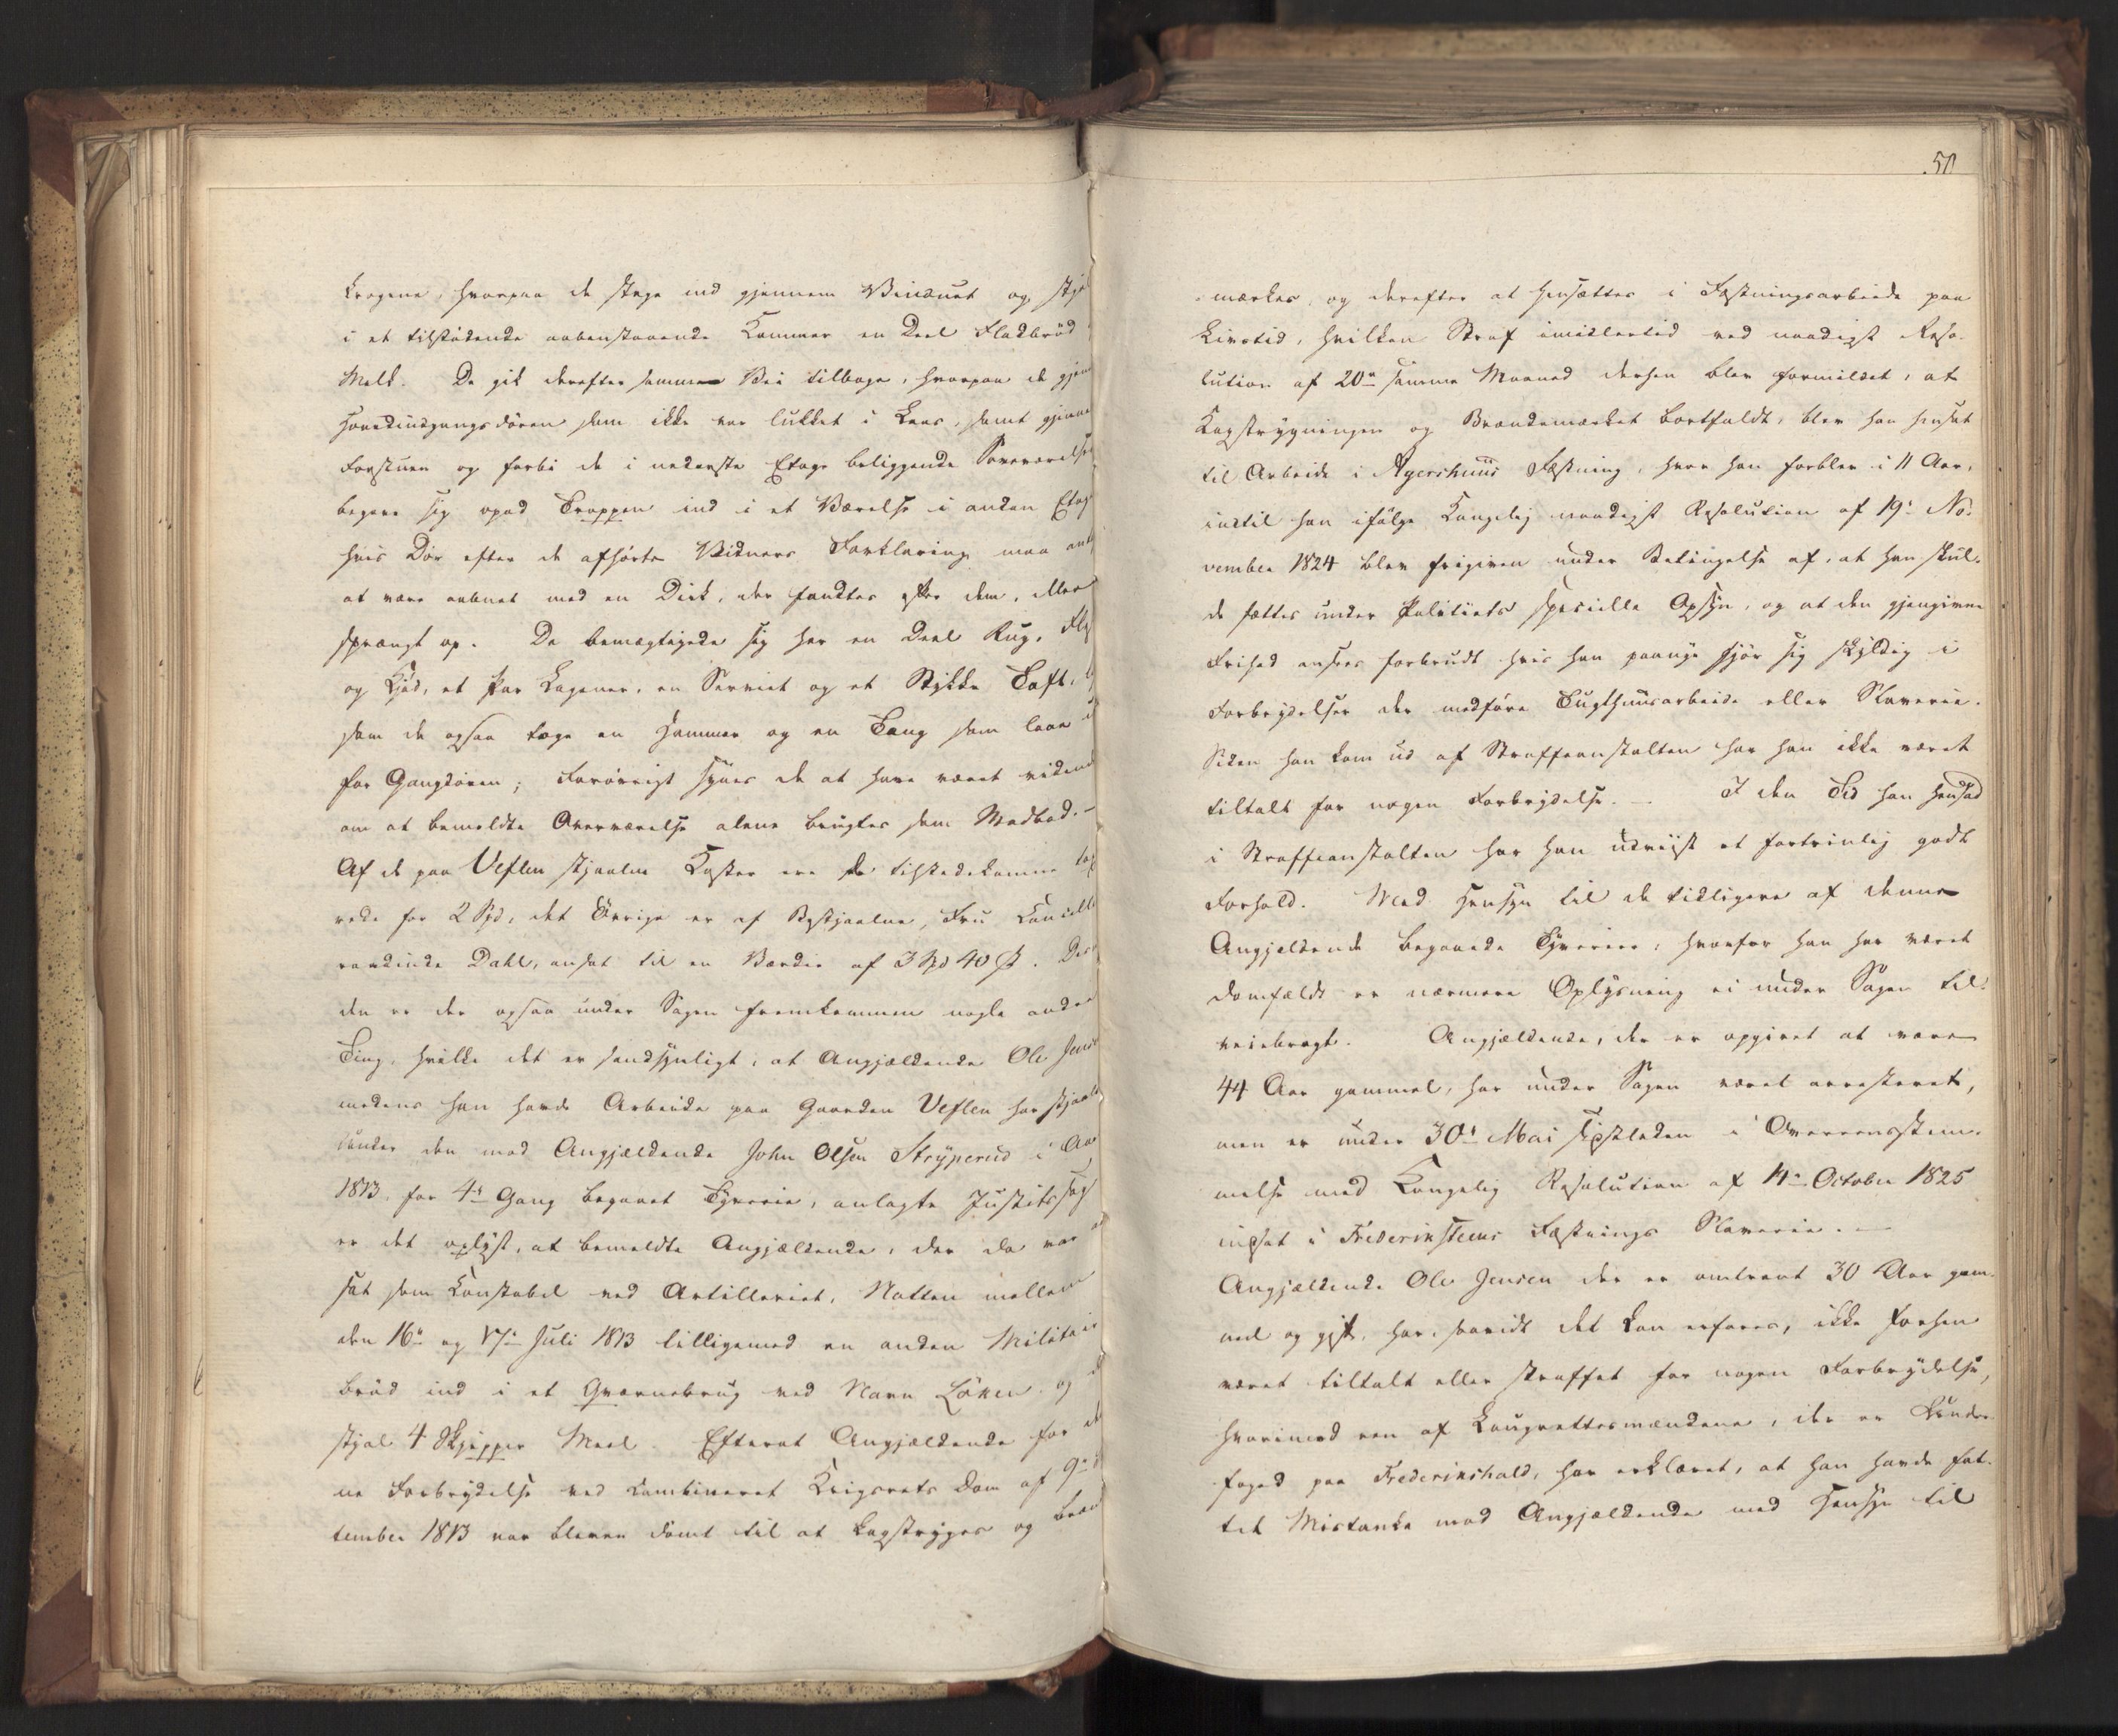 Krogene, hvorpaa de stege ind gjennem Vinduet og stjal
i et tilstødende aabenstaaende Kammer en Deel Fladbrød
Malt. De gik derefter samme Vei tilbage, hvorpaa de gjennem
Hovedindgangsdøren som ikke var lukket i Laas, samt gjennem
Forstuen og forbi de i nederste Etage beliggende Soveværelser
begave sig opad Trappen ind i et Værelse i anden Etage
hvis Dør efter de afhørte Vidners Forklaring maa
at være aabnet med en Dirk, der fandtes efter dem, eller
sprængt op. De bemægtigede sig her en Deel Rug,
og Kjød, et Par Lagener, en Serviet og et Stykke Toft,
som de ogsaa toge en Hammer og en Tang som laae
for Gangdøren; Forøvrigt synes de at have været vidende
om at bemeldte Overværelse alene brugtes som Madbod. -
Af de paa Veflen stjaalne Koster ere de tilstedekomne
rede for 2 Spd, det Øvrige er af Bestjaalne, Fru Cancelli
raadinde Dahl, ansat til en Værdie af 3 Spd 40 ß. Des
den er der ogsaa under Sagen fremkommen nogle andre
Ting, hvilke det er sandsynligt, at Angjældende Ole Jensen
medens han havde Arbeide paa Gaarden Veflen har stjaalet
Under den mod Angjældende John Olsen Stryperud i Aar
1813, for 4de Gang begaaet Tyverie, anlagte Justitssag
er det oplyst, at bemeldte Angjældende, der da var
sat som Constabel ved Artilleriet, Natten mellem
den 16de og 17de Juli 1813 tilligemed en anden Militair
brød ind i et Qværnebrug ved Navn Løken og
stjal 4 Skjepper Meel. Efterat Angjældende for
ne Forbrydelse ved combineret Krigsrets Dom af 9de
tember 1813 var bleven dømt til at kagstryges og brænde
50
mærkes, og derefter at hensættes i Fæstningsarbeide paa
Livstid, hvilken Straf imidlertid ved naadigst Reso-
lution af 20de samme Maaned dersen blev formildet, at
Kagstrygningen og Brændemærket bortfaldt, blev han hensat
til Arbeide i Agershuus Fæstning, hvor han forblev i 11 Aar,
indtil han ifølge Kongelig naadigst Resolution af 19de No-
vember 1824 blev frigiven under Betingelse af, at han skul-
de sættes under Politiets specielle Opsyn, og at den gjengivne
Frihed ansees forbrudt hvis han paanye gjør sig skyldig i
Forbrydelser der medføre Tugthuusarbeide eller Slaverie.
Siden han kom ud af Straffeanstalten har han ikke været
tiltalt for nogen Forbrydelse. - I den Tid han hensad
i Straffeanstalten har han udviist et fortrinlig godt
Forhold. Med Hensyn til de tidligere af denne
Angjeldende begaaede Tyverier, hvorfor han har været
domfældt er nærmere Oplysning ei under Sagen til-
veiebragt. Angjældende, der er opgivet at være
44 Aar gammel, har under Sagen været arresteret,
men er under 30de Mai sidstleden i Overeensstem-
melse med Kongelig Resolution af 11te October 1825
indsat i Frideriksteens Fæstnings Slaverie. -
Angjældende Ole Jensen der er omtrent 30 Aar gam-
mel og gift, har, saavidt det kan erfares, ikke forhen
været tiltalt eller straffet for nogen Forbrydelse,
hvorimod een af Laugrettesmændene, der er Under-
foged paa Frederikshald, har erklæret, at han havde fat-
tet Mistanke mod Angjældende med Hensyn til